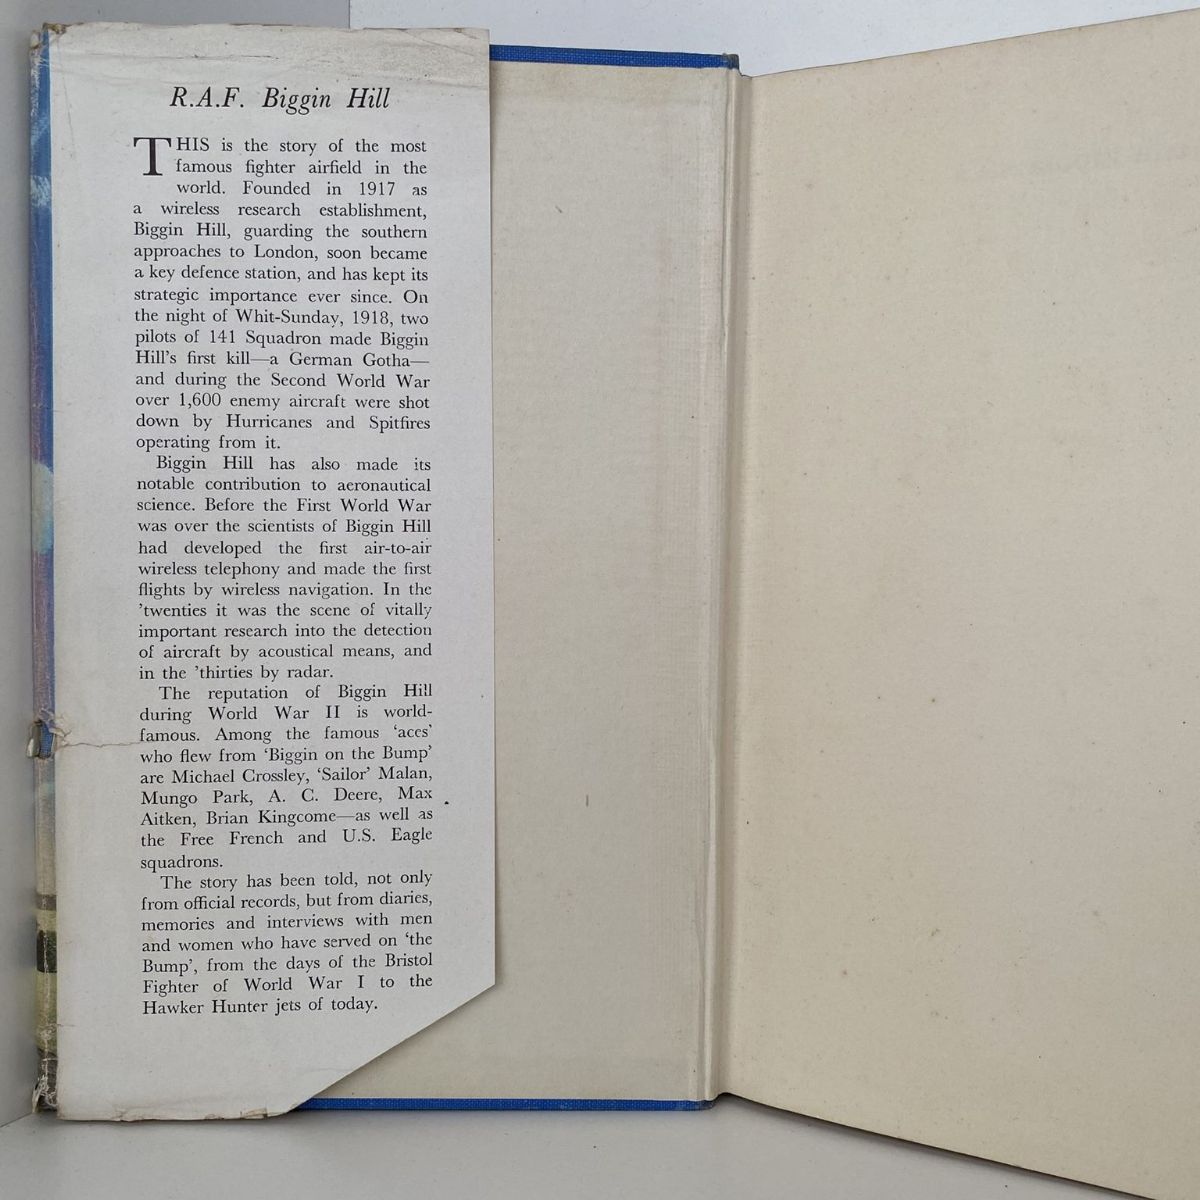 R.A.F. Biggin Hill
THIS is the story of the most
famous fighter airfield in the
world. Founded in 1917 as
a wireless research establishment,
Biggin Hill, guarding the southern
approaches to London, soon became
a key defence station, and has kept its
strategic importance ever since. On
the night of Whit-Sunday, 1918, two
pilots of 141 Squadron made Biggin
Hill's first kill—a German Gotha—
and during the Second World War
over 1,600 enemy aircraft were shot
down by Hurricanes and Spitfires
operating from it.
Biggin Hill has also made its
notable contribution to aeronautical
science. Before the First World War
was over the scientists of Biggin Hill
had developed the first air-to-air
wireless telephony and made the first
flights by wireless navigation. In the
'twenties it was the scene of vitally
important research into the detection
of aircraft by acoustical means, and
in the 'thirties by radar.
The reputation of Biggin Hill
during World War II is world-
famous. Among the famous 'aces'
who flew from 'Biggin on the Bump'
are Michael Crossley, 'Sailor' Malan,
Mungo Park, A. C. Deere, Max
Aitken, Brian Kingcome—as well as
the Free French and U.S. Eagle
squadrons.
The story has been told, not only
from official records, but from diaries,
memories and interviews with men
and women who have served on 'the
Bump', from the days of the Bristol
Fighter of World War I to the
Hawker Hunter jets of today.